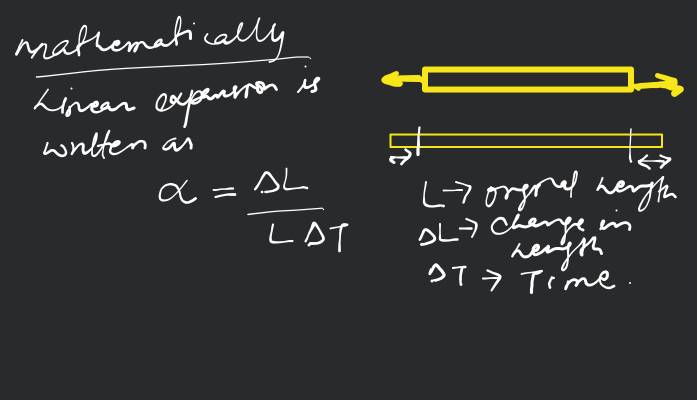 Mathematically
Linear expansion is
written as
α = ΔL
L ΔT
L → orginal length
ΔL → change in
length
ΔT → Time.